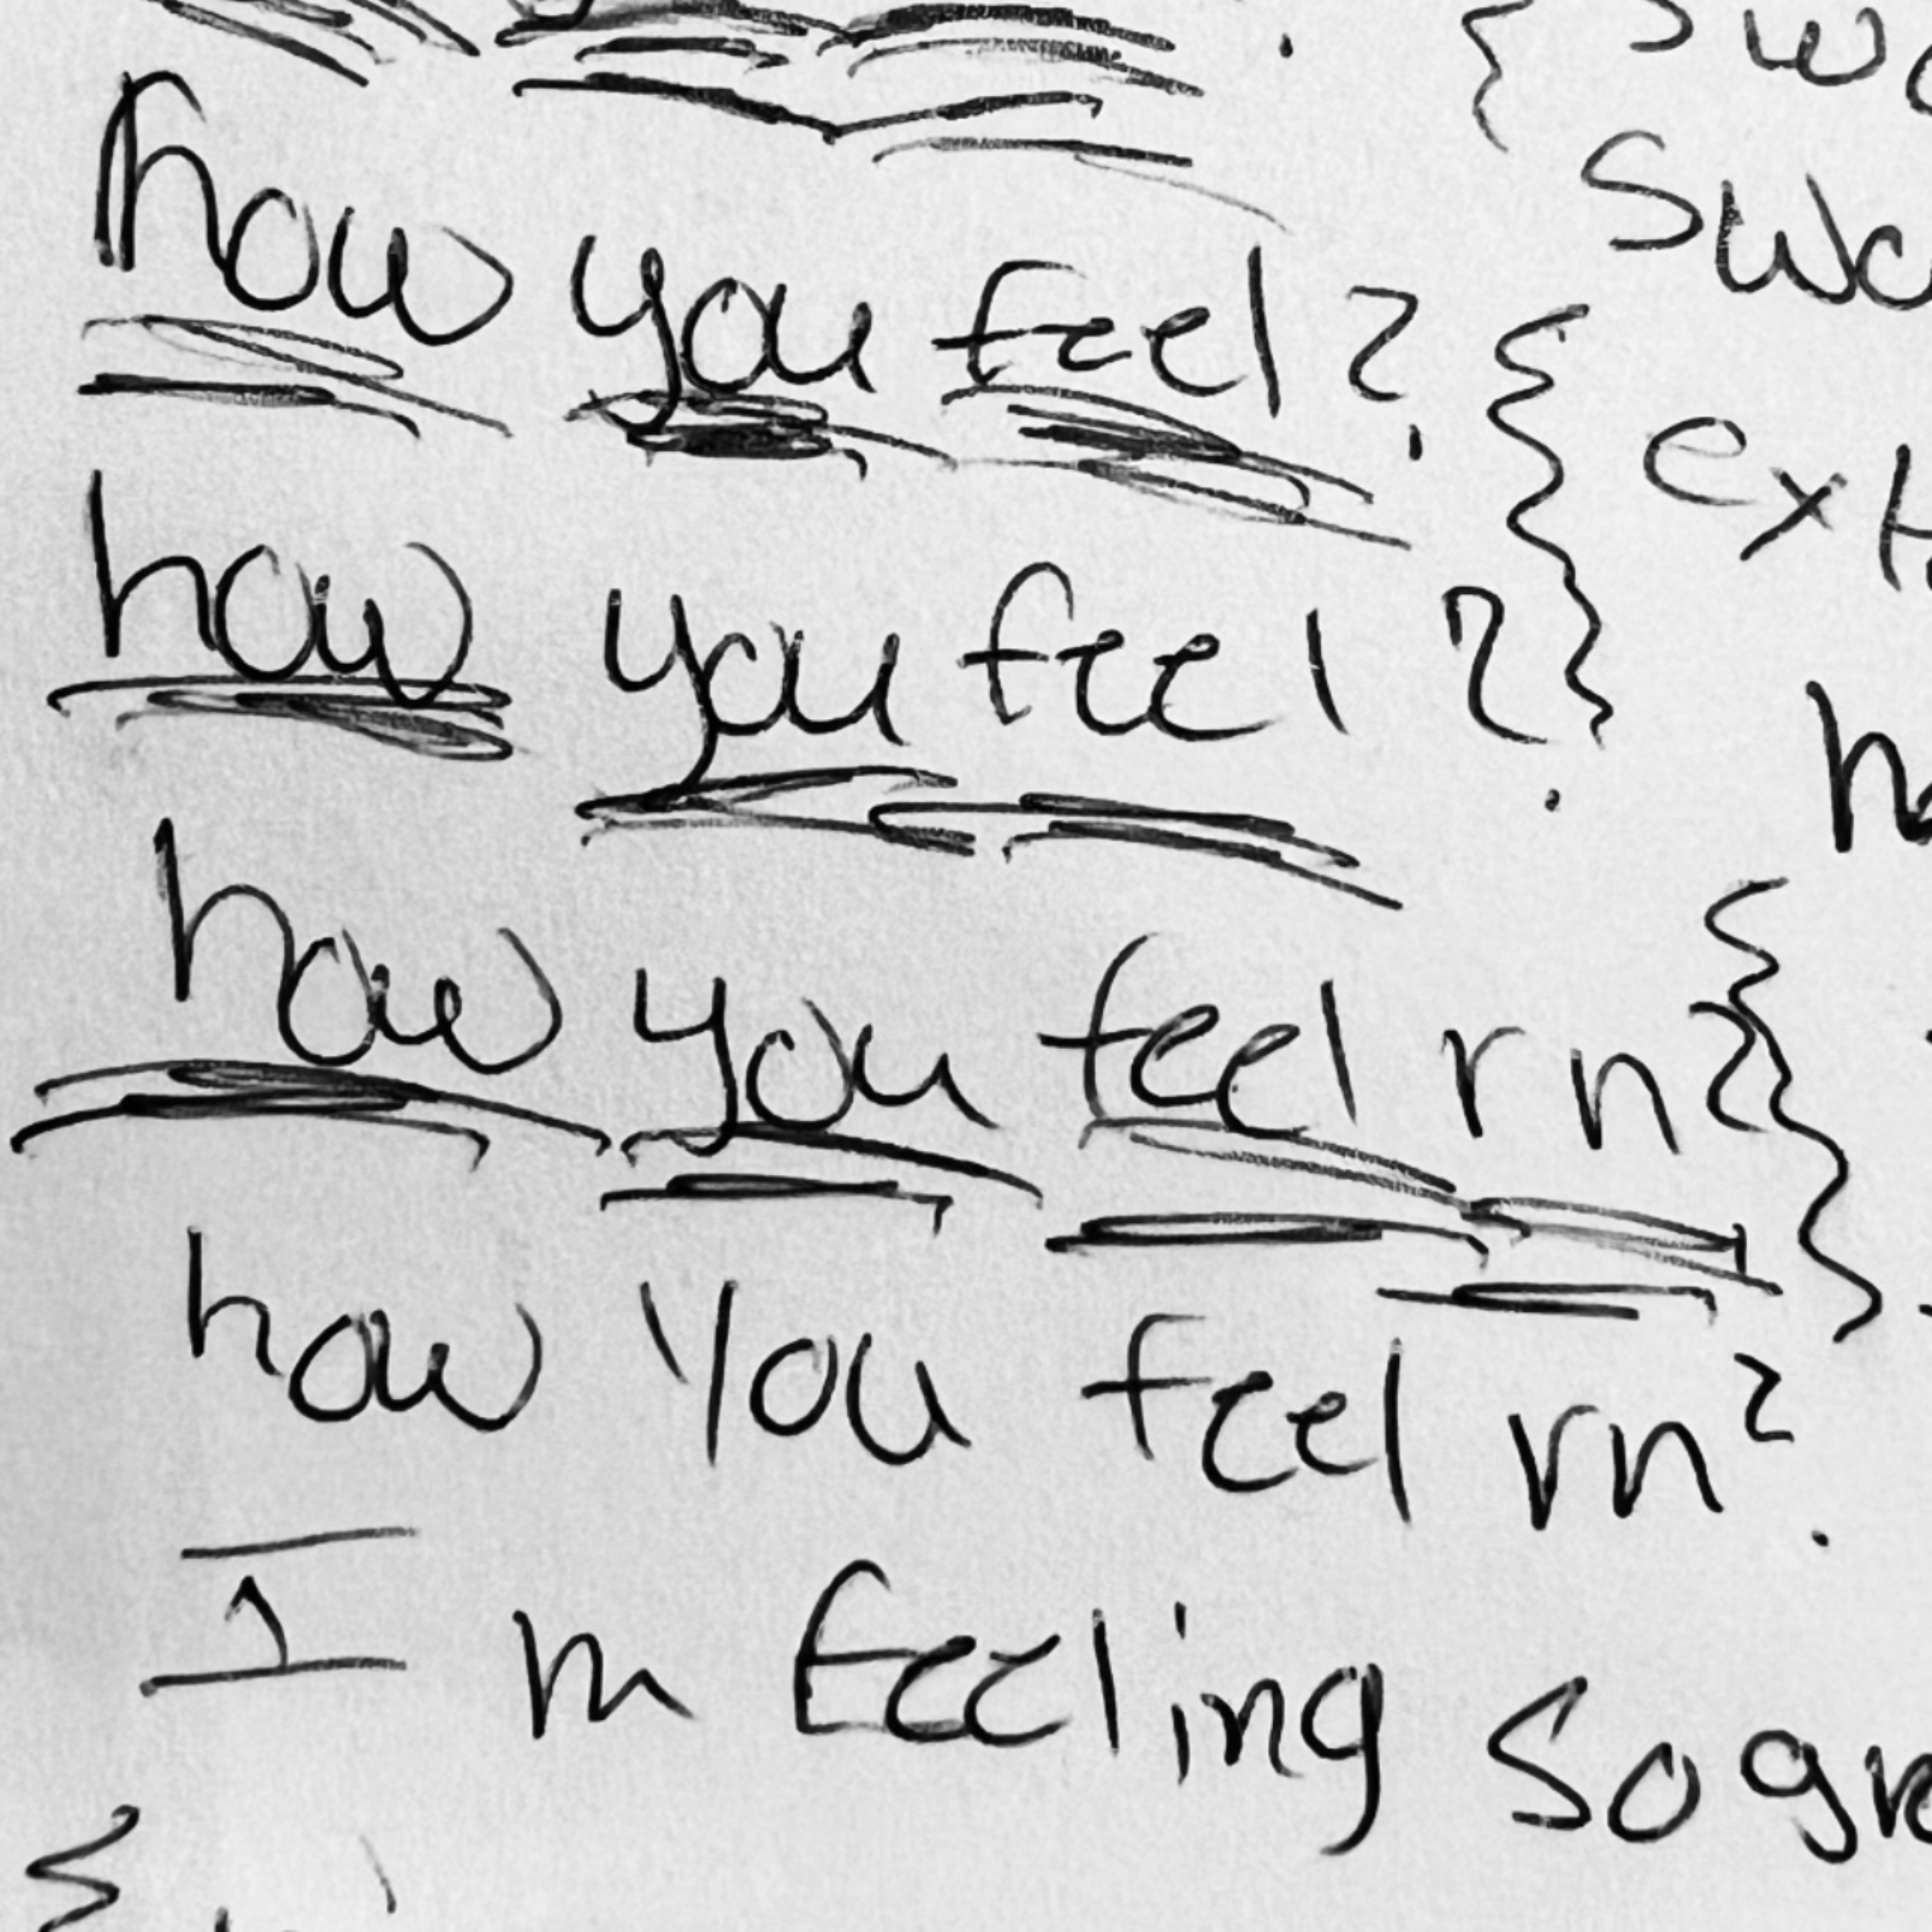 how you feel?
how you feel?
how you feel rn?
how you feel rn?
I m feeling so